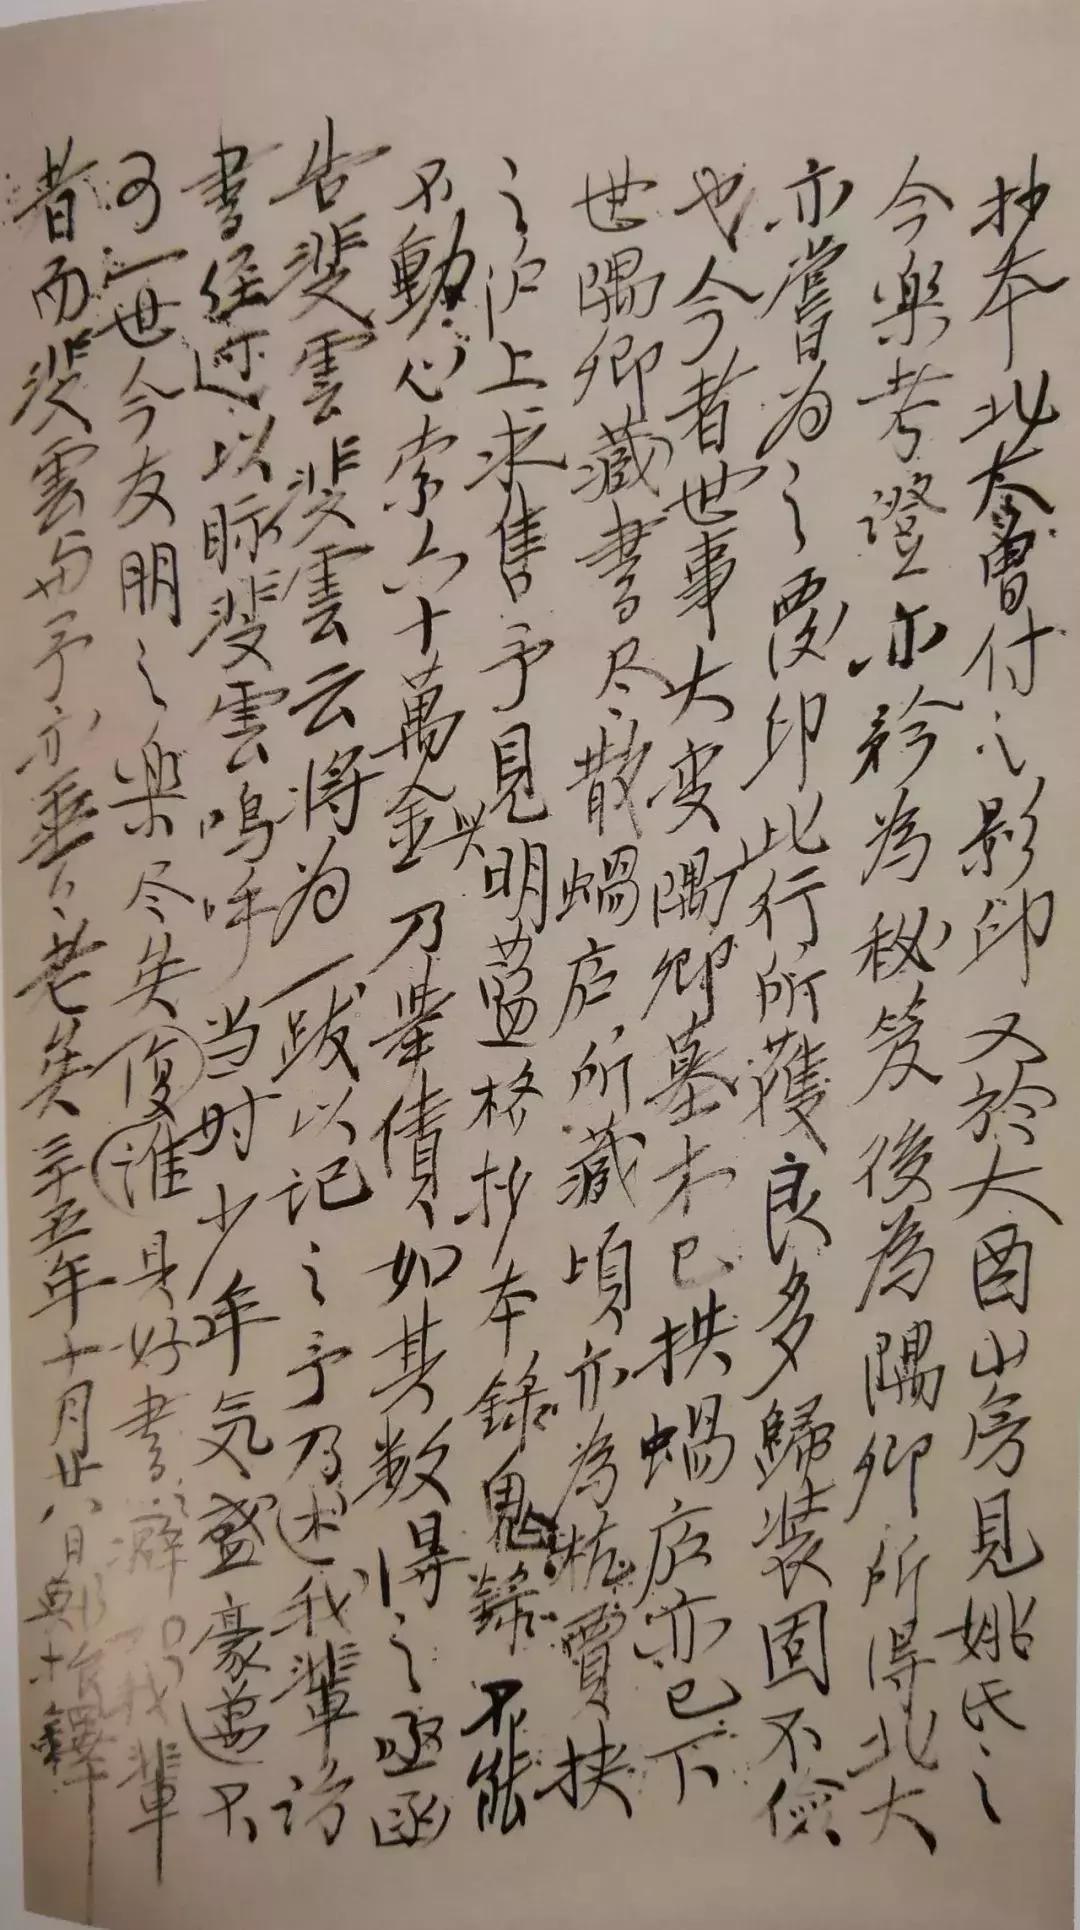 抄本北大曾付之影印又於大酉山房見姚氏之
今樂考證亦矜為秘笈後為隅卿所得北大
亦嘗為之覆印此行所獲良多歸裝固不儉
也今者世事大变隅卿墓木已拱蝸庐亦已下
世隅卿藏書尽散蝸庐所藏頃亦為杭賈挾
之沪上求售予見明藍格抄本錄鬼簿不能
不動心索六十萬金乃舉債如其数得之亟函
告斐雲斐雲云将為一跋以记之予乃述我輩访
書经过以眎斐雲嗚呼当时少年气盛豪邁不
可一世今友朋之樂尽失復谁具好書癖若我輩
者而斐雲与予亦垂垂老矣三十五年十月廿八日鄭振鐸